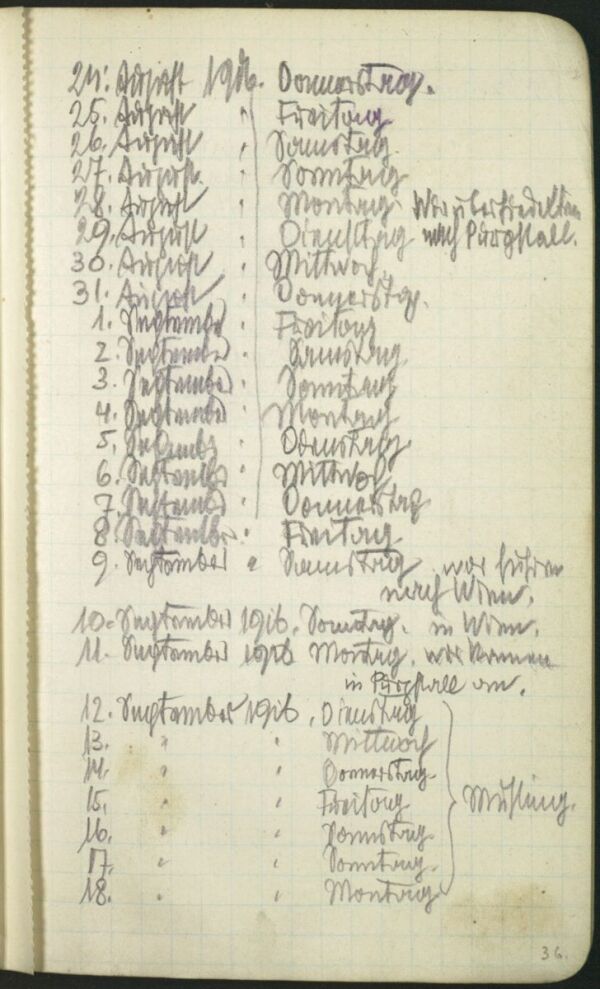 24. August 1916. Donnerstag.
25. August " Freitag
26. August " Samstag
27. August " Sonntag
28. August " Montag Wir übersiedelten
29. August " Dienstag nach Purgstall.
30. August " Mittwoch
31. August " Donnerstag.
1. September " Freitag
2. September " Samstag
3. September " Sonntag
4. September " Montag
5. September " Dienstag
6. September " Mittwoch
7. September " Donnerstag
8. September " Freitag
9. September " Samstag wir fuhren
nach Wien.
10. September 1916. Sonntag. in Wien.
11. September 1916 Montag. wir kamen
in Purgstall an.
12. September 1916. Dienstag
13. " " Mittwoch
14. " " Donnerstag
15. " " Freitag
16. " " Samstag
17. " " Sonntag
18. " " Montag
36.